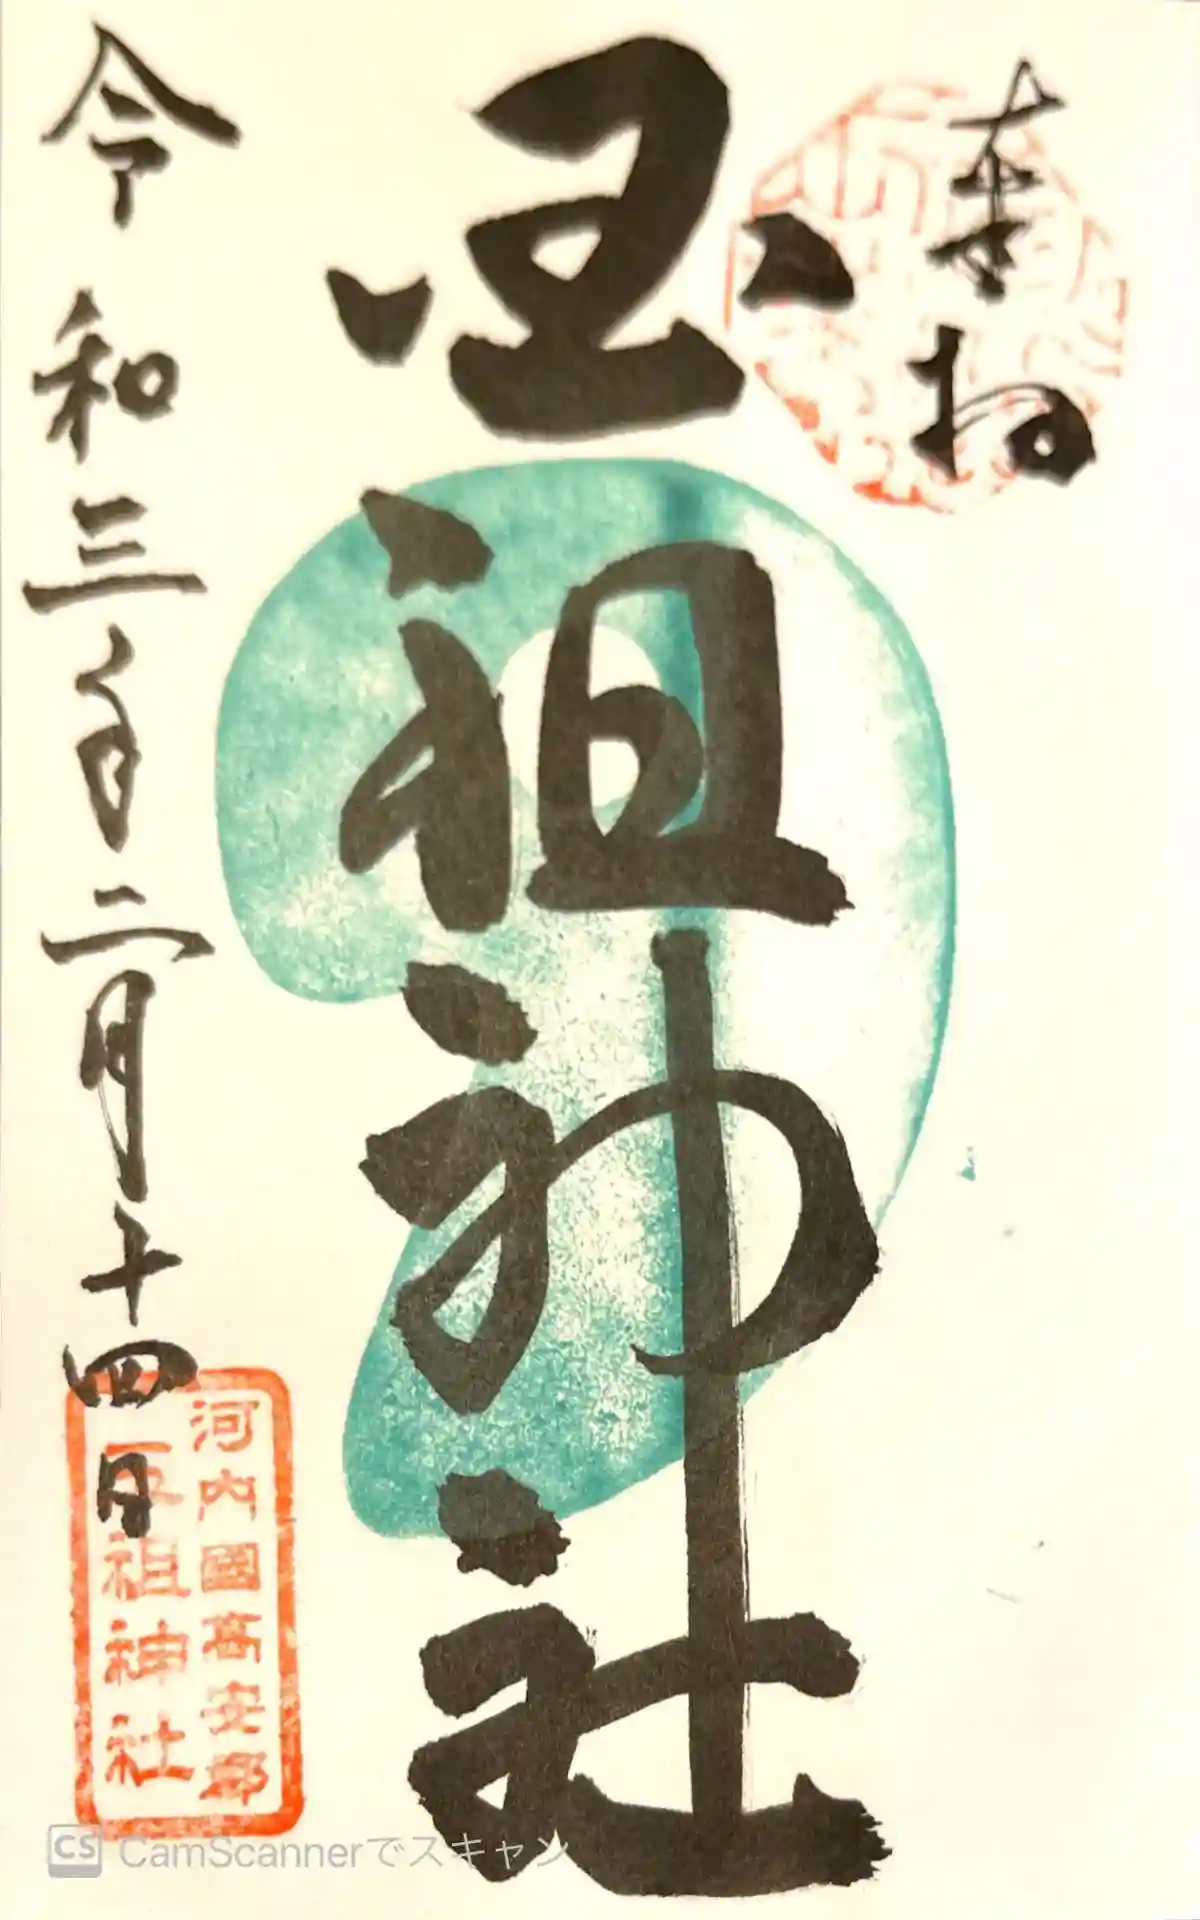 奉拝
玉祖神社
令和三年二月十四日
河内國高安郷
玉祖神社
CS CamScannerでスキャン